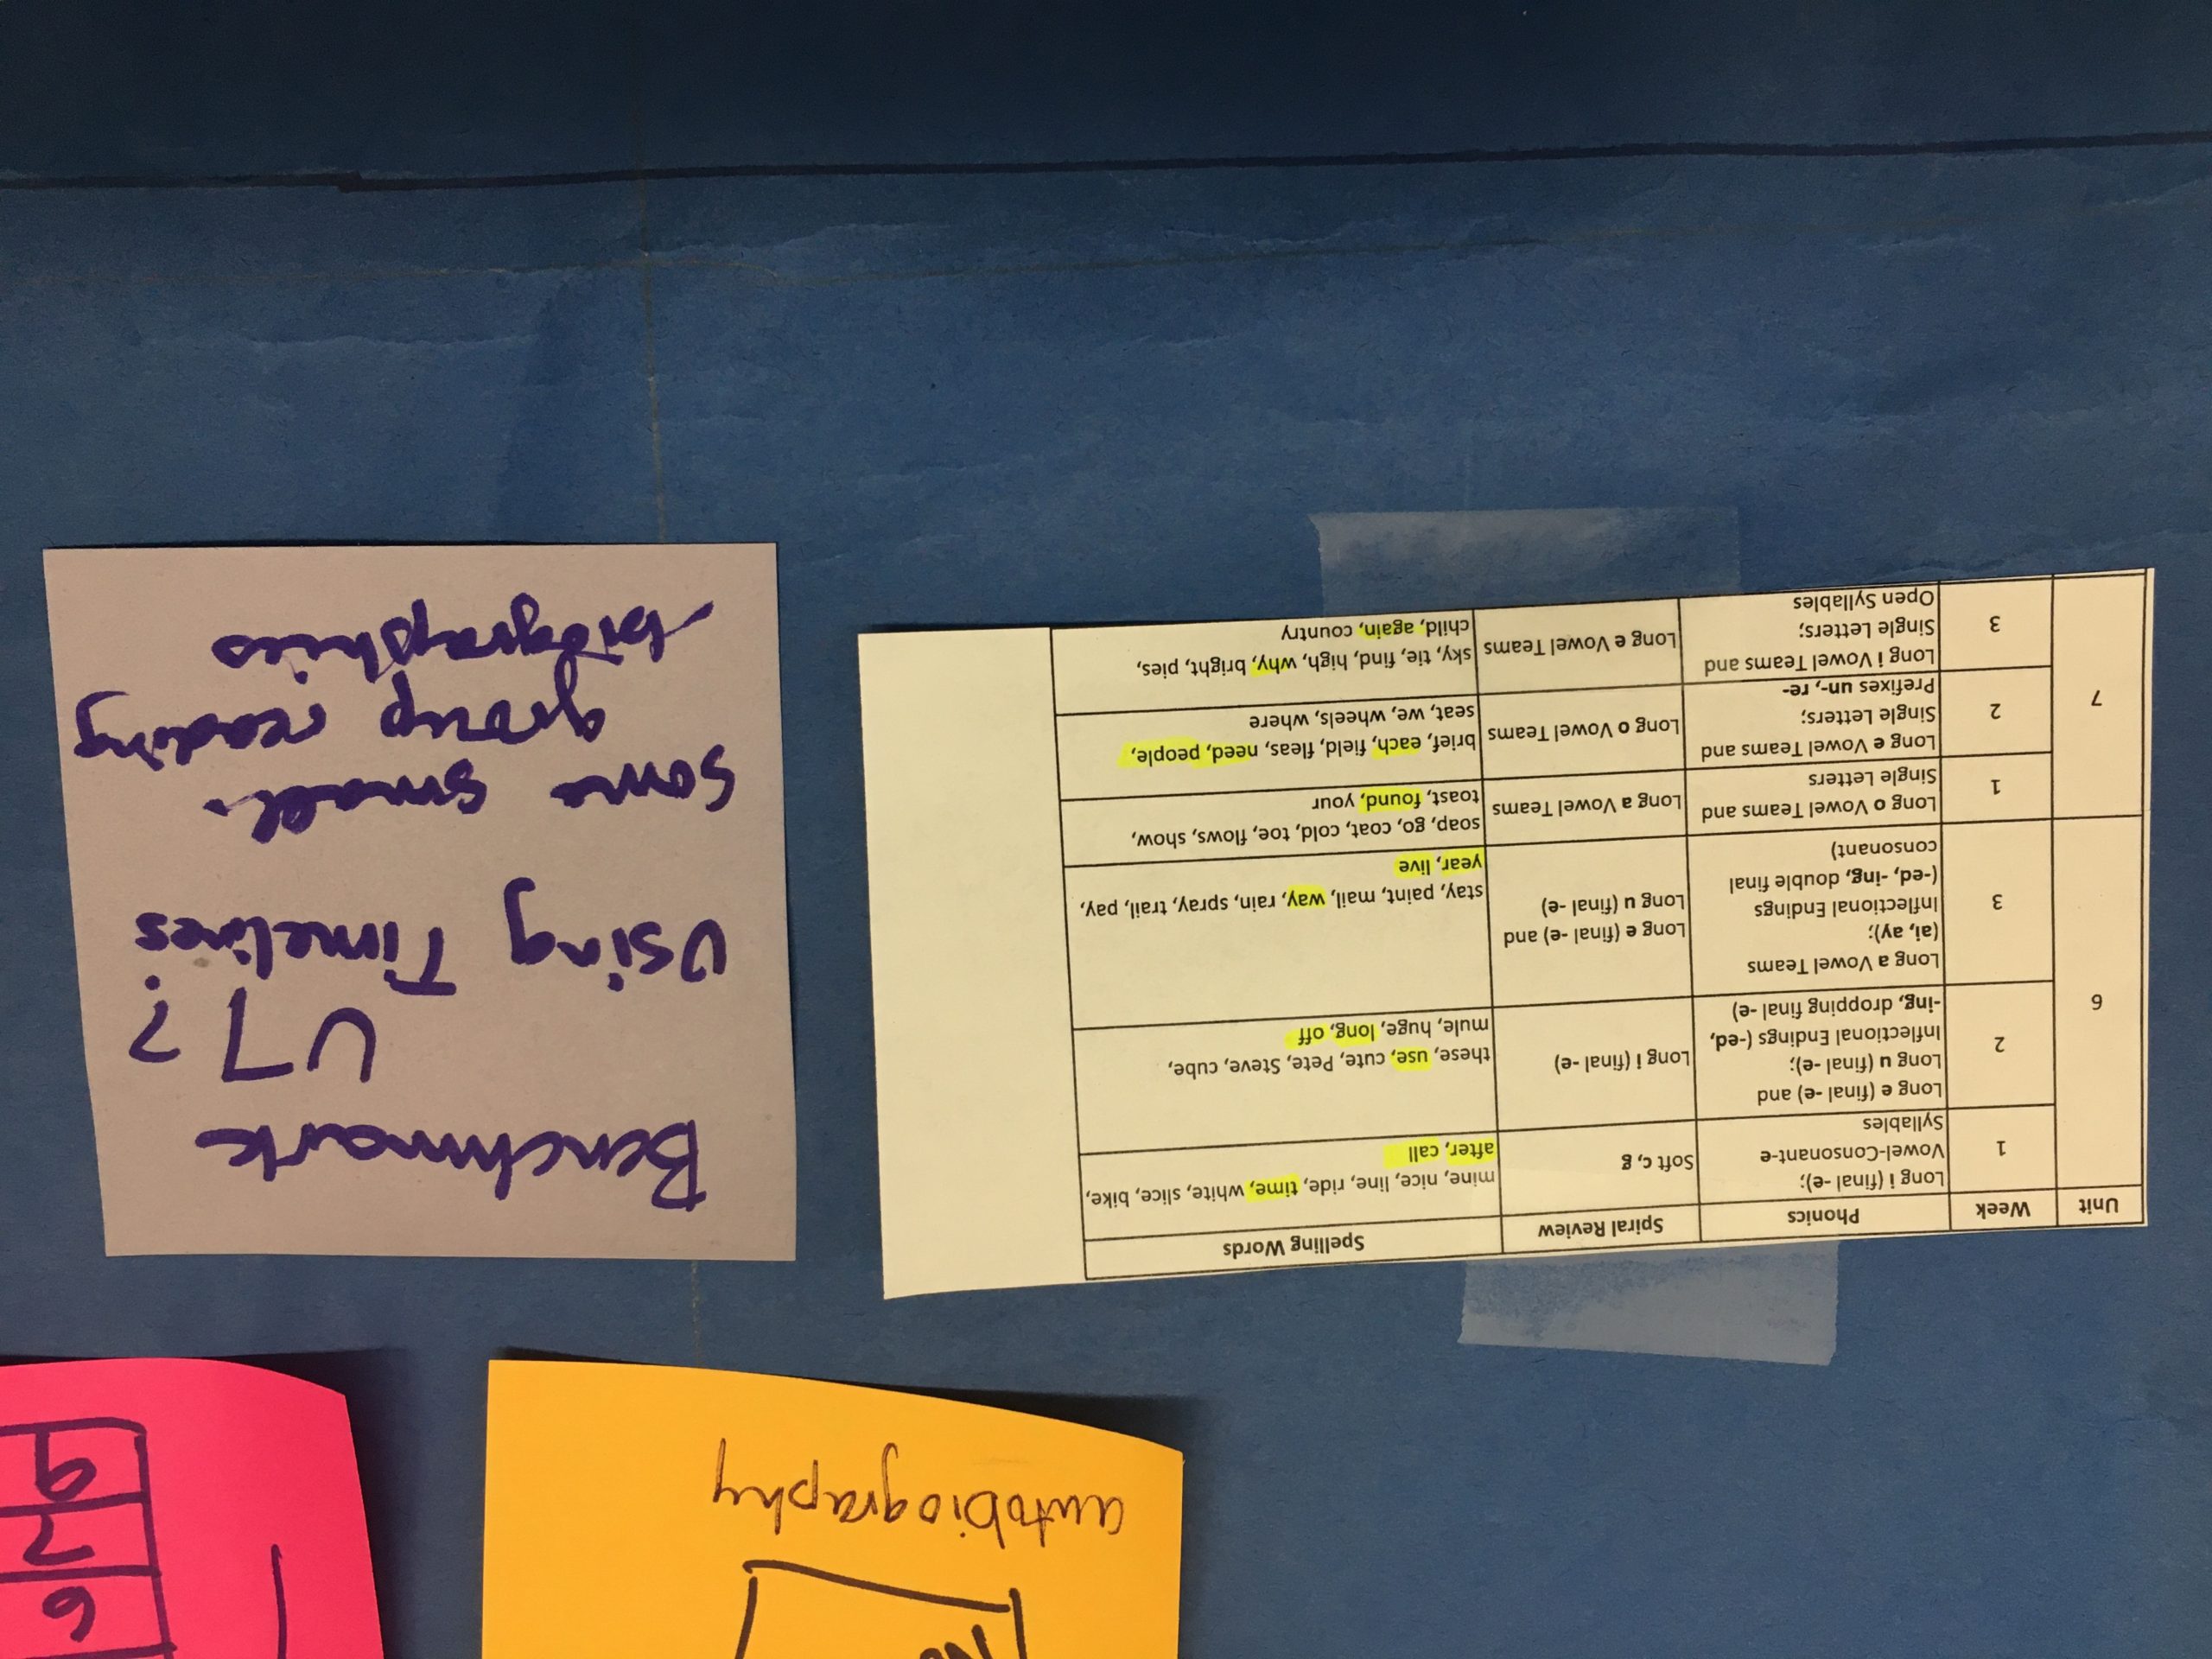 autobiography
Unit Week Phonics Spiral Review Spelling Words
6
1
Long i (final -e);
Vowel-Consonant-e
Syllables
Soft c, g
mine, nice, line, ride, time, white, slice, bike,
after, call
2
Long e (final -e) and
Long u (final -e);
Inflectional Endings (-ed,
-ing, dropping final -e)
Long i (final -e)
these, use, cute, Pete, Steve, cube,
mule, huge, long, off
3
Long a Vowel Teams
(ai, ay);
Inflectional Endings
(-ed, -ing, double final
consonant)
Long e (final -e) and
Long u (final -e)
stay, paint, mail, way, rain, spray, trail, pay,
year, live
7
1
Long o Vowel Teams and
Single Letters
Long a Vowel Teams
soap, go, coat, cold, toe, flows, show,
toast, found, your
2
Long e Vowel Teams and
Single Letters;
Prefixes un-, re-
Long o Vowel Teams
brief, each, field, fleas, need, people,
seat, we, wheels, where
3
Long i Vowel Teams and
Single Letters;
Open Syllables
Long e Vowel Teams
sky, tie, find, high, why, bright, pies,
child, again, country
Benchmark
U7?
Using Timelines
some small
group reading
-biographies